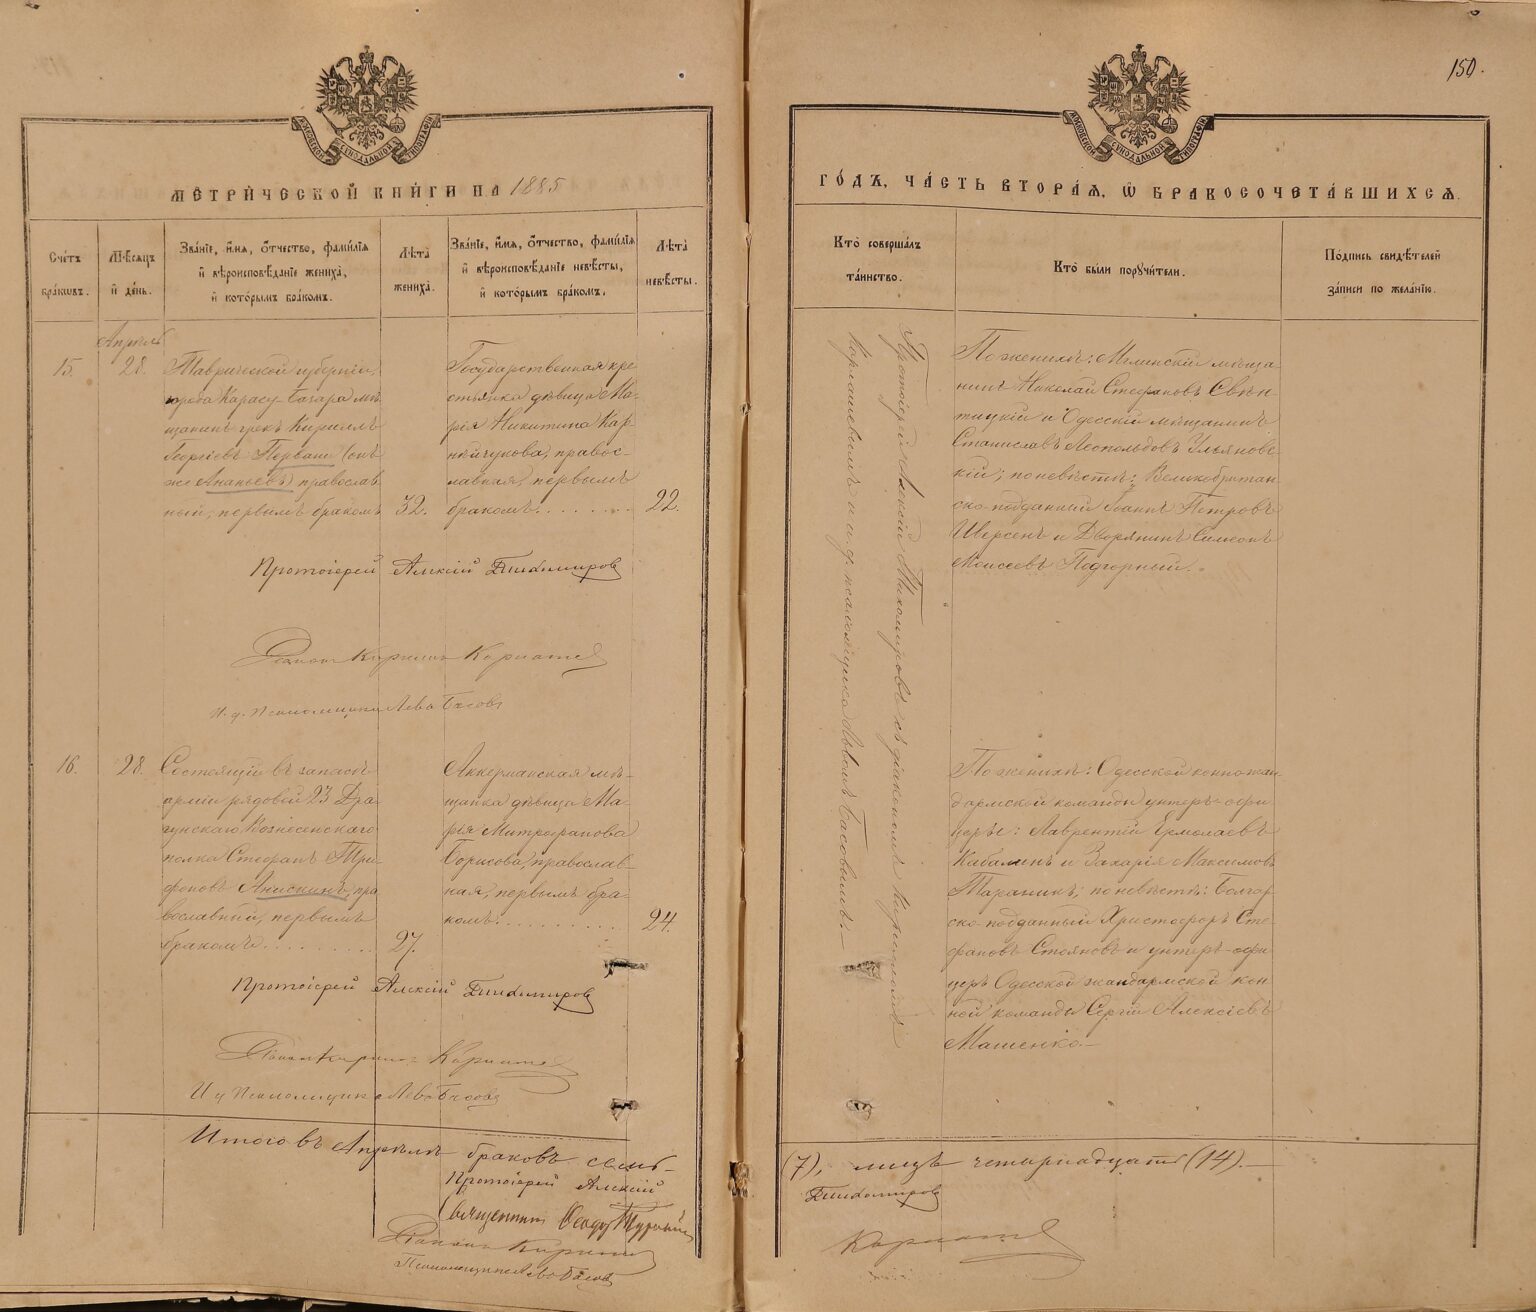 150.
МОСКОВСКОЙ СѴНОДАЛЬНОЙ ТИПОГРАФІИ
МОСКОВСКОЙ СѴНОДАЛЬНОЙ ТИПОГРАФІИ
МЕТРИ́ЧЕСКОЙ КНИ́ГИ НА 1885
ГО́ДЪ, ЧА́СТЬ ВТОРА́Я, Ѽ БРАКОСОЧЕТА́ВШИХСЯ.
Сче́тъ
бра́кѡвъ.
Мѣ́сяцъ
и҆ де́нь.
Зва́нїе, и҆́мя, ѻ҆́тчество, фами́лїя
и҆ вѣроисповѣ́данїе жениха̀,
и҆ кото́рымъ бра́комъ.
Лѣ́та
жениха̀.
Зва́нїе, и҆́мя, ѻ҆́тчество, фами́лїя
и҆ вѣроисповѣ́данїе невѣ́сты,
и҆ кото́рымъ бра́комъ.
Лѣ́та
невѣ́сты.
Кто̀ соверша́лъ
та́инство.
Кто̀ бы́ли порꙋчи́тели.
По́дпись свидѣ́телей
за́писи по жела́нїю.
Апрѣль
15.
28.
Таврической губерніи,
города Карасу-Базара мѣ-
щанинъ грекъ Кириллъ
Георгіевъ Первани (онъ
же Ананьевъ) православ
ный, первымъ бракомъ
32.
Государственная кре
стьянка дѣвица Ма-
рія Никитина Кар-
нійчукова, правос-
лавная, первымъ
бракомъ. . . . . . .
22.
Протоіерей Алексій Тихомировъ съ діакономъ Кирилломъ
Карпашевымъ и и. д. псаломщика Львомъ Басовымъ.
По женихѣ: Мглинскій мѣща-
нинъ Николай Стефановъ Свѣн-
тицкій и Одесскій мѣщанинъ
Станиславъ Леопольдовъ Ульяновс-
кій; по невѣстѣ: Великобритан-
ско-подданный Іоаннъ Петровъ
Шерсенъ и Дворянинъ Симеонъ
Моисеевъ Подгорный.
Протоіерей Алексій Тихомировъ
Діаконъ Кириллъ
И. д. Псаломщика Левъ Басовъ
16.
28.
Состоящій въ запасѣ
арміи рядовой 23 Дра
гунскаго Вознесенскаго
полка Стефанъ Три-
фоновъ Анискинъ, пра
вославный, первымъ
бракомъ. . . . . . . .
27.
Аккерманская мѣ-
щанка дѣвица Ма-
рія Митрофанова
Борисова, православ-
ная, первымъ бра-
комъ. . . . . . . . .
24.
По женихѣ: Одесской конножан
дармской команды унтеръ-офи
церы: Лаврентій Ермолаевъ
Кабалинъ и Захарія Максимовъ
Тараникъ; по невѣстѣ: Болгар
ско-подданный Христофоръ Сте-
фановъ Стояновъ и унтеръ-офи
церъ Одесской жандармской кон-
ной команды Сергій Алексіевъ
Машенко.—
Протоіерей Алексій Тихомировъ
Діаконъ Кириллъ
И д Псаломщика Левъ Басовъ
Итого въ Апрѣлѣ браковъ семь
(7), лицъ четырнадцать (14).—
Протоіерей Алексій
Тихомировъ
Священникъ Ѳеодръ
Діаконъ Кириллъ
Псаломщикъ Левъ Басовъ